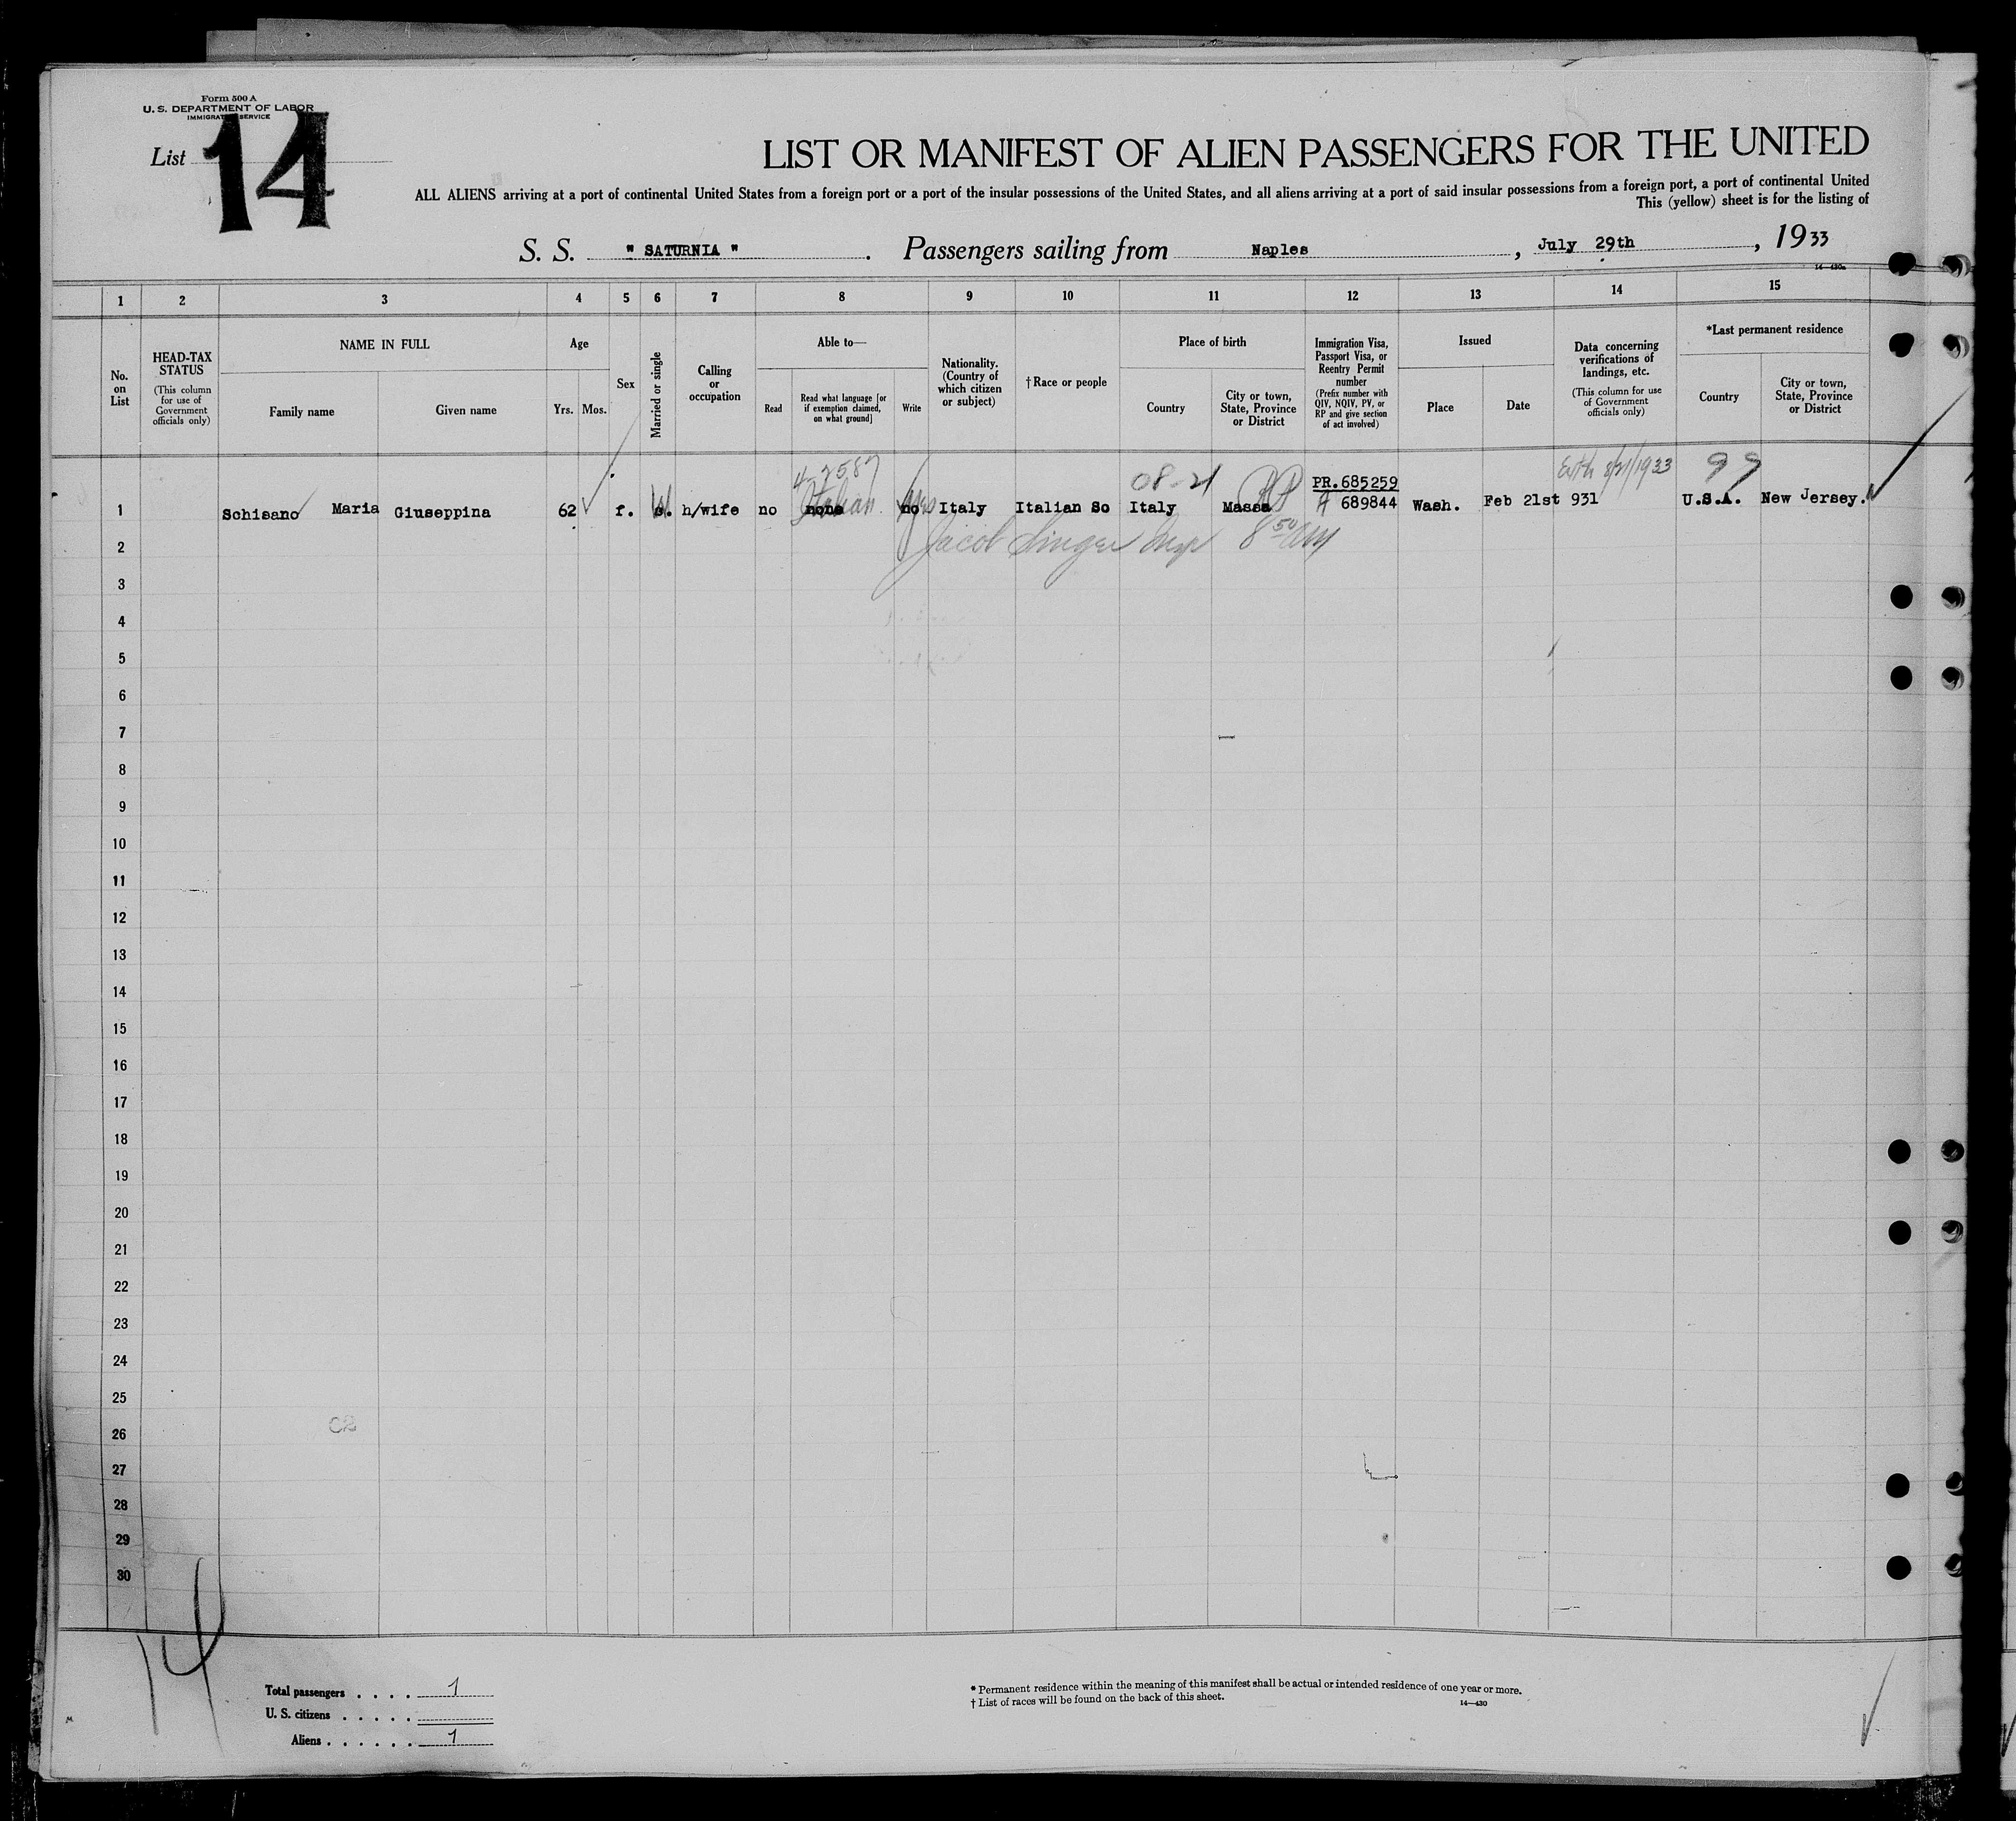 Form 500 A
U. S. DEPARTMENT OF LABOR
IMMIGRATION SERVICE
List 14
LIST OR MANIFEST OF ALIEN PASSENGERS FOR THE UNITED
ALL ALIENS arriving at a port of continental United States from a foreign port or a port of the insular possessions of the United States, and all aliens arriving at a port of said insular possessions from a foreign port, a port of continental United
This (yellow) sheet is for the listing of
S. S. " SATURNIA ". Passengers sailing from Naples, July 29th, 1933
14—430a
1 2 3 4 5 6 7 8 9 10 11 12 13 14 15
No. on List
HEAD-TAX STATUS
(This column for use of Government officials only)
NAME IN FULL
Family name
Given name
Age
Yrs. Mos.
Sex
Married or single
Calling or occupation
Able to—
Read
Read what language [or if exemption claimed, on what ground]
Write
Nationality. (Country of which citizen or subject)
†Race or people
Place of birth
Country
City or town, State, Province or District
Immigration Visa, Passport Visa, or Reentry Permit number
(Prefix number with QIV, NQIV, PV, or RP and give section of act involved)
Issued
Place
Date
Data concerning verifications of landings, etc.
(This column for use of Government officials only)
*Last permanent residence
Country
City or town, State, Province or District
08-21 PR.685259 99
1 Schisano Maria Giuseppina 62 f. s. h/wife no none Italian no Italy Italian So Italy Massa RP 689844 Wash. Feb 21st 931 U.S.A. New Jersey.
2 Jacob Singer Insp 8 50 AM
3
4
5
6
7
8
9
10
11
12
13
14
15
16
17
18
19
20
21
22
23
24
25
26
27
28
29
30
14
Total passengers . . . . 1
U. S. citizens . . . . .
Aliens . . . . . . 1
* Permanent residence within the meaning of this manifest shall be actual or intended residence of one year or more.
† List of races will be found on the back of this sheet.
14—430